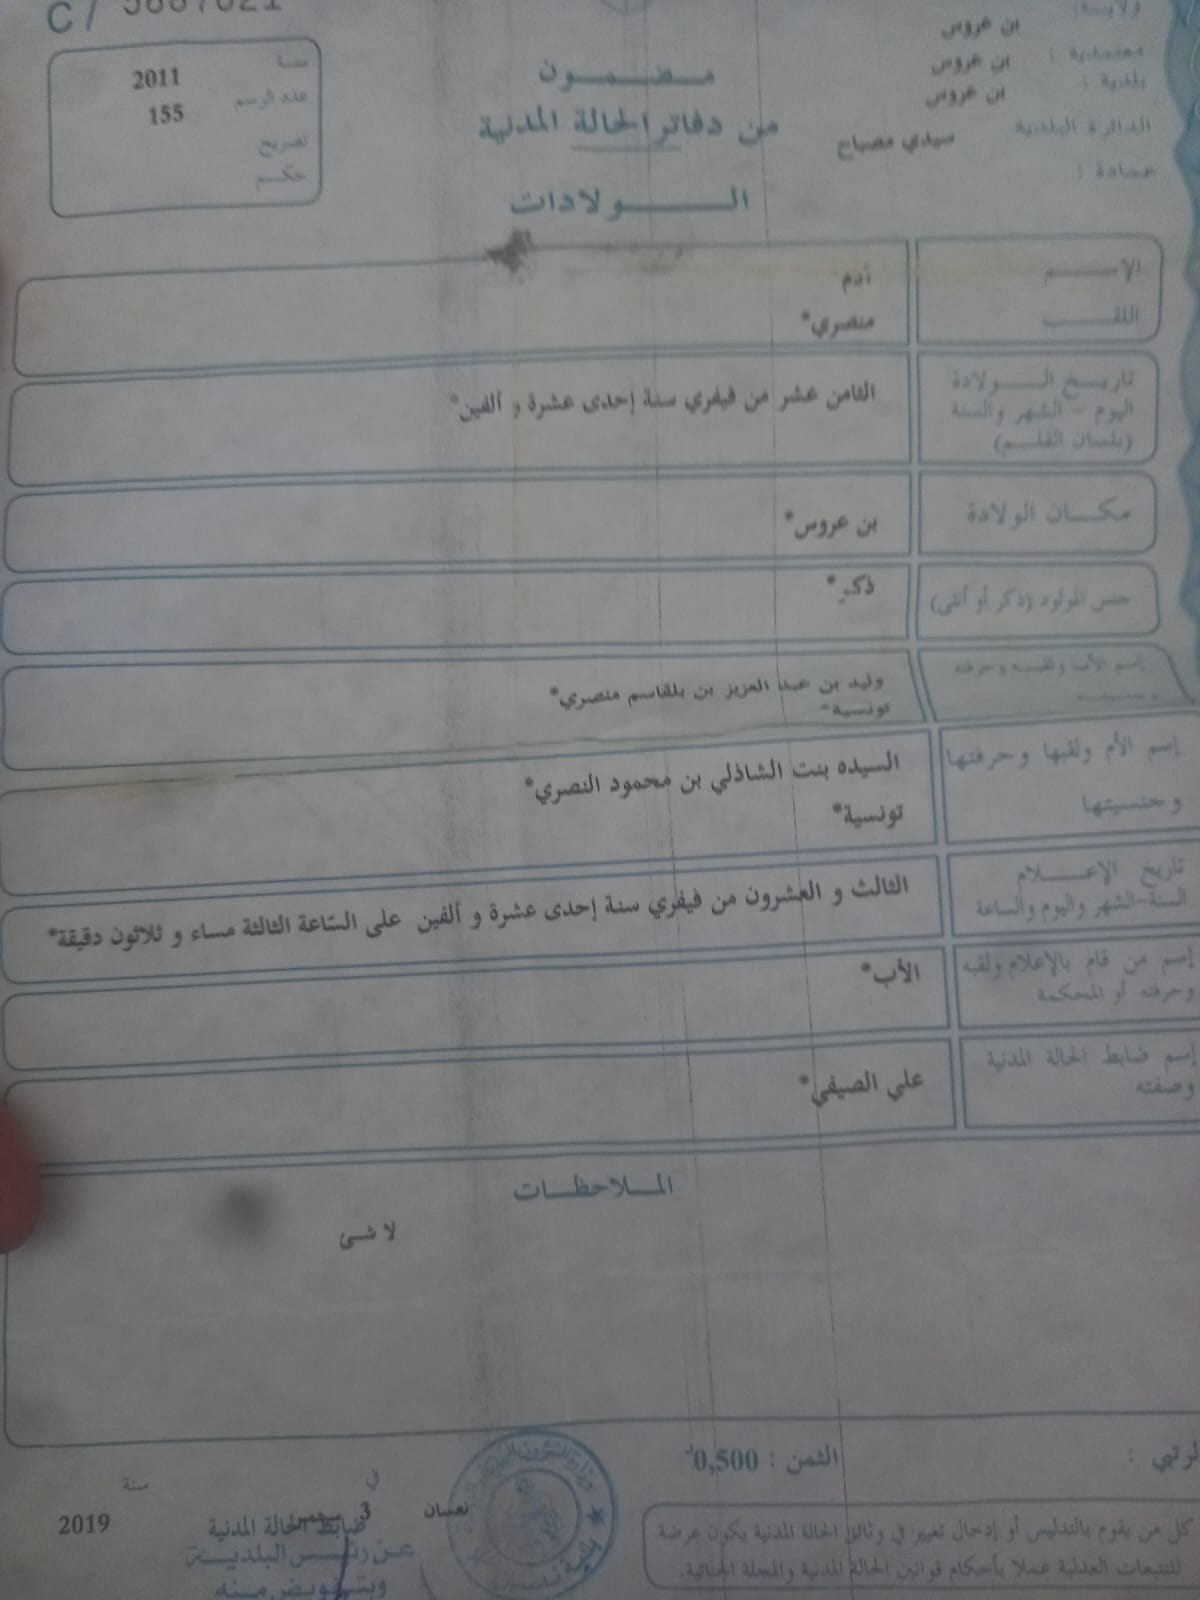 ولاية: بن عروس
معتمدية : بن عروس
بلدية : بن عروس
الدائرة البلدية سيدي مصباح
عمادة :
مضمون
من دفاتر الحالة المدنية
الولادات
سنة 2011
عدد الرسم 155
تصريح
حكم
الإسم آدم
اللقب منصري*
تاريخ الولادة
اليوم - الشهر والسنة
(بلسان القلم)
الثامن عشر من فيفري سنة إحدى عشرة و ألفين*
مكان الولادة بن عروس*
جنس المولود (ذكر أو أنثى) ذكر*
إسم الأب ولقبه وحرفته
وليد بن عبد العزيز بن بلقاسم منصري*
تونسية*
إسم الأم ولقبها وحرفتها
وجنسيتها
السيده بنت الشاذلي بن محمود النصري*
تونسية*
تاريخ الإعلام
السنة-الشهر واليوم والساعة
الثالث و العشرون من فيفري سنة إحدى عشرة و ألفين على السّاعة الثالثة مساء و ثلاثون دقيقة*
إسم من قام بالإعلام ولقبه
وحرفته أو المحكمة
الأب*
إسم ضابط الحالة المدنية
وصفته
علي الصيفي*
الملاحظات
لا شئ
الثمن : 0,500
كل من يقوم بالتدليس أو إدخال تغيير في وثائق الحالة المدنية يكون عرضة
للتتبعات العدلية عملا بأحكام قوانين الحالة المدنية والمجلة الجنائية.
نعسان في 3 سنة 2019
ضابط الحالة المدنية
عن رئيس البلدية
وبتفويض منه